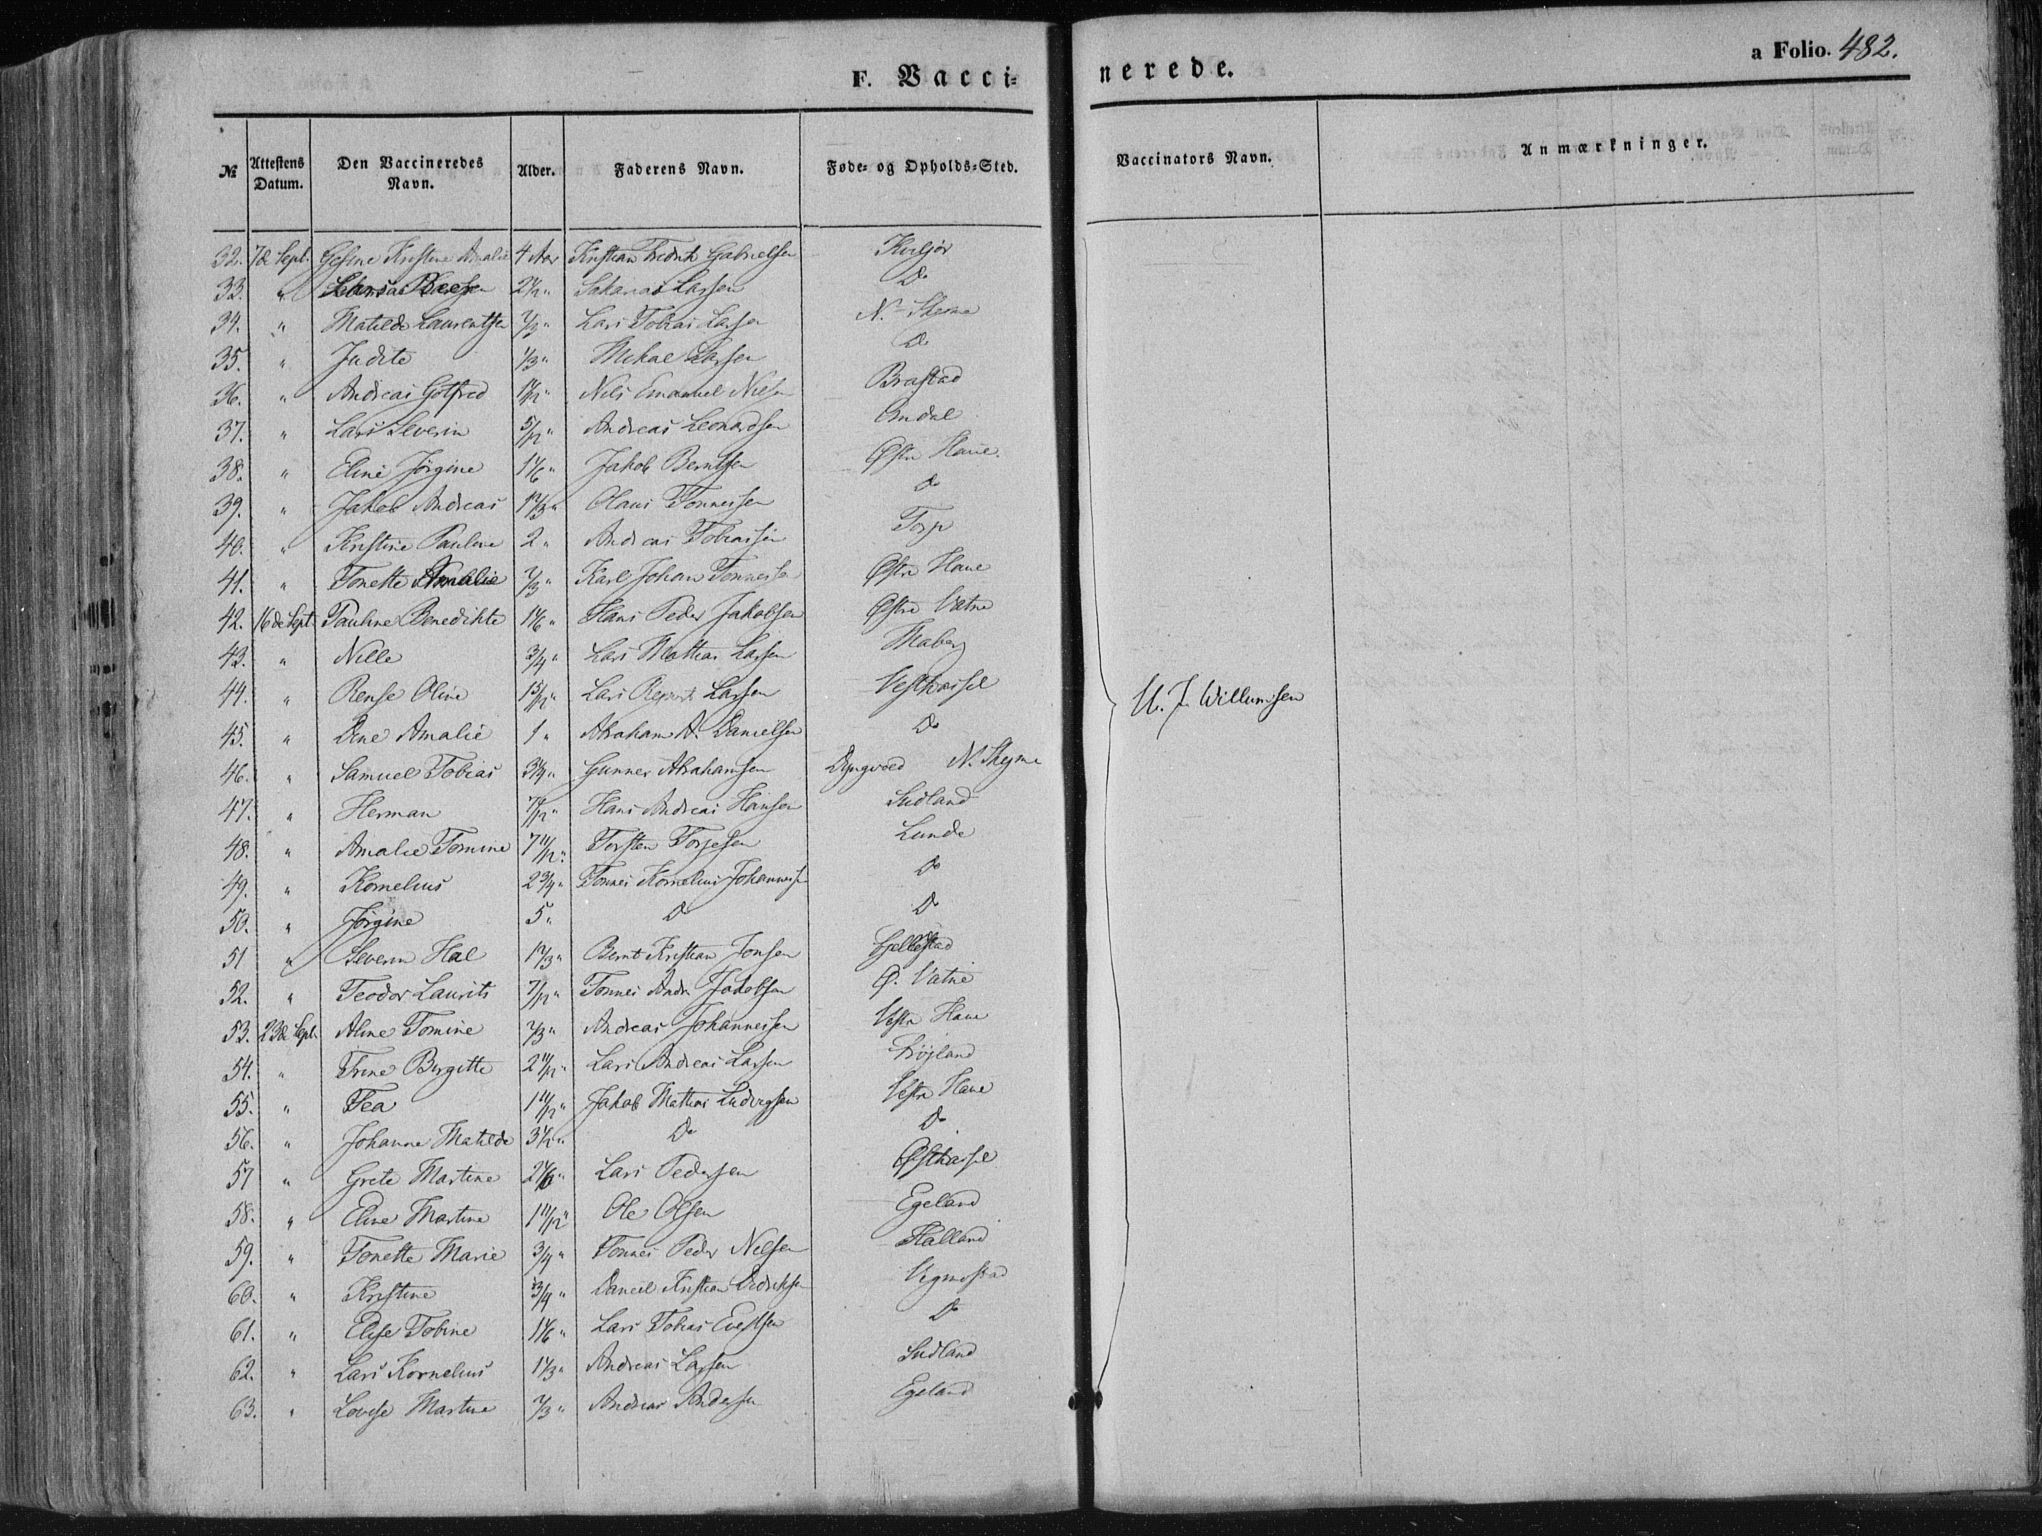 F. Vacci-
nerede.
a Folio. 482.
№ Attestens Datum. Den Vaccineredes Navn. Alder. Faderens Navn. Føde- og Opholds-Sted. Vaccinators Navn. Anmærkninger.
32. 7de Sept. Gesine Kristine Amalie 4 Aar Kristian Fredrik Gabrielsen
33. " 2 1/2 " Sakarias Larsen Do
34. " Matilde Laurentse 2/3 " Lars Tobias Larsen N. Skeme
35. " Judite 1/3 " Mikal Larsen Do
36. " Andreas Gotfred Nils Emanuel Nilsen Brastad
37. " Lars Severin 5/12 " Andreas Leonardsen Omdal
38. " Eline Jørgine 1 1/6 " Jakob Berntsen Østre Haue.
39. " Jakob Andreas 1 2/3 " Olaus Tønnessen do
40. " Kristine Pauline 2 " Andreas Tobiassen Torp
41. " Tonette Amalie 2/3 " Karl Johan Tønnessen Østre Haue
42. 16de Sept. Pauline Benedikte 1 1/6 " Hans Peder Jakobsen Østre Vatne
43. " Nille 3/4 " Lars Mathias Larsen Maberg
44. " Rense Oline 1 5/12 " Lars Larsen Vesthassel
45. " Dine Amalie 1 " Abraham A. Danielsen Do
46. " Samuel Tobias 3 3/4 " Gunner Abrahamsen Dyngvoed N. Skeime
47. " Herman Hans Andreas Hansen Sudland
48. " Amalie Tomine 7 11/12 " Torsten Torjesen Lunde
49. " Kornelius 2 3/4 " Tønnes Kornelius Johannesse do
50. " Jørgine 5 " Do Do
51 " Severin Hal 1 2/3 " Bernt Kristian Jonsen Gjellestad
52. " Teodor Laurits 7/12 " Tønnes Andr. Jakobsen Ø. Vatne
53. 23de Sept. Aline Tomine 2/3 " Andreas Johannessen Vestre Haue
54. " Trine Birgitte 2 11/12 " Lars Andreas Larsen Frøjland
55. " Tea 1 11/12 " Jakob Mathias Ludvigsen Vestre Haue
56. " Johanne Matilde 3 1/2 " Do Do
57 " Grete Martine 2 1/6 " Lars Pedersen Østhassel
58. " Eline Martine 1 11/12 " Ole Olsen Egeland
59. " Tonette Marie 3/4 " Tønnes Peder Nilsen Halland
60. " Kristine 3/4 " Daniel Kristian Didriksen Vigmostad
61. " Elise Tobine 1 1/6 " Lars Tobias Evertsen Do
62. " Lars Kornelius 1 1/3 " Andreas Larsen Sudland
63. " Lovise Martine 2/3 " Andreas Andersen Egeland
U. J. Willumsen